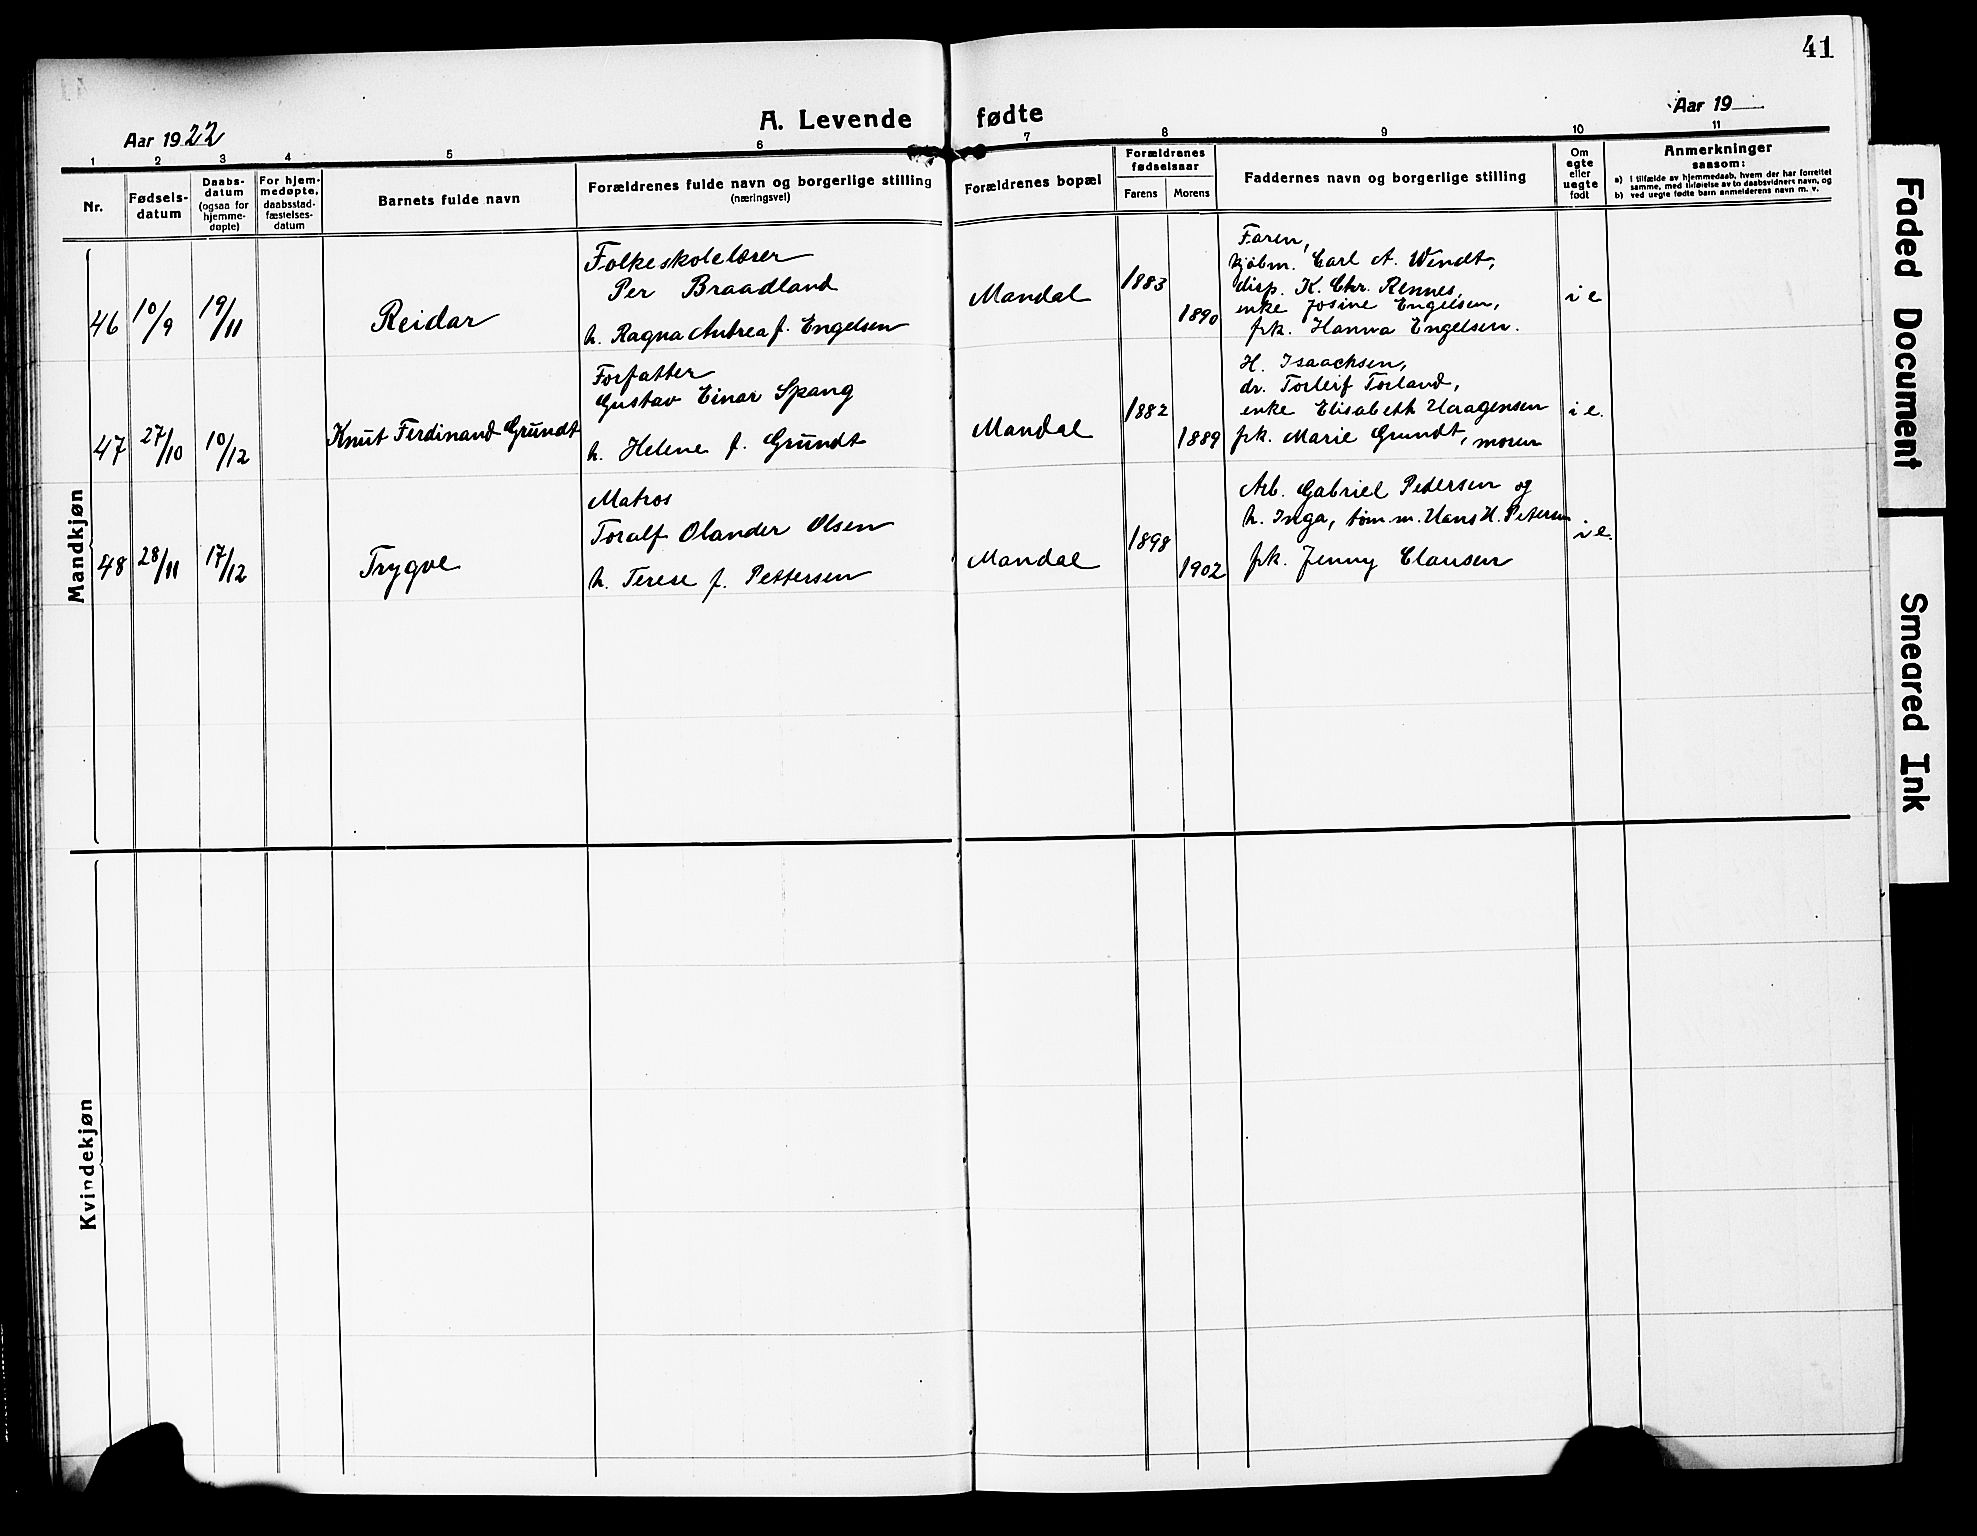 41
A. Levende fødte
Aar 1922
Aar 19
1 2 3 4 5 6 7 8 9 10 11
Nr.
Fødsels-
datum
Daabs-
datum
(ogsaa for
hjemme-
døpte)
For hjem-
medøpte,
daabsstad-
fæstelses-
datum
Barnets fulde navn
Forældrenes fulde navn og borgerlige stilling
(næringsvei)
Forældrenes bopæl
Forældrenes
fødselsaar
Farens Morens
Faddernes navn og borgerlige stilling
Om
egte
eller
uegte
født
Anmerkninger
saasom:
a) i tilfælde av hjemmedaab, hvem der har forrettet
samme, med tilføielse av to daabsvidners navn, og
b) ved uegte fødte barn anmelderens navn m. v.
Mandkjøn
46 10/9 19/11 Reidar
Folkeskolelærer
Per Braadland
h. Ragna Andrea f. Engelsen
Mandal 1883 1890
Faren,
kjøbm. Carl A. Wendt,
disp. K. Chr. Rennes,
enke Josine Engelsen,
frk. Hanna Engelsen.
i e
47 27/10 10/12 Knut Ferdinand Grundt
Forfatter
Gustav Einar Spang
h. Helene f. Grundt
Mandal 1882 1889
H. Isaachsen,
dr. Torleif Torland,
enke Elisabeth Haagensen
frk. Marie Grundt, moren
i e.
48 28/11 17/12 Trygve
Matros
Toralf Olander Olsen
h. Terese f. Pettersen
Mandal 1898 1902
Arb. Gabriel Pedersen og
h. Inga, tøm.m. Hans H. Petersen
frk. Jenny Clausen
i e.
Kvindekjøn
Faded Document
Smeared Ink